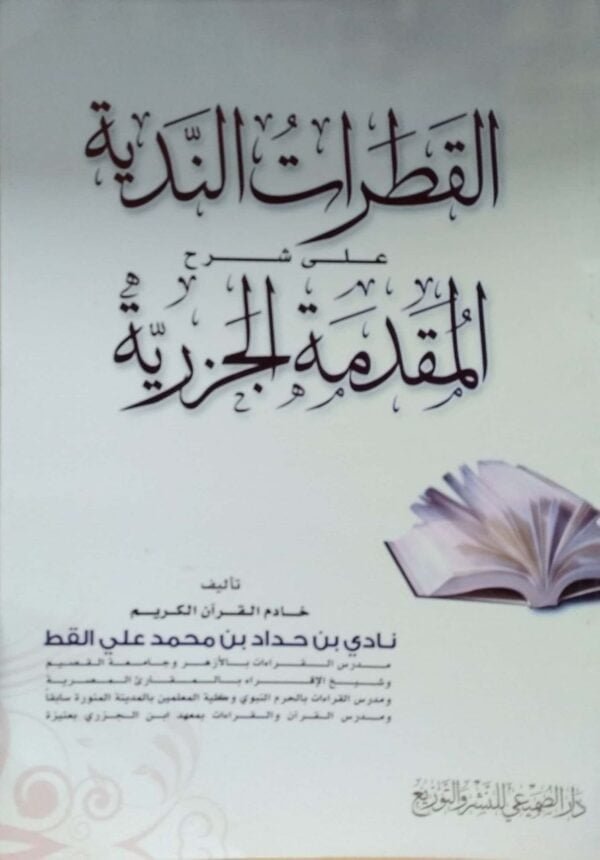 القَطَراتُ النَّدية
على شرح
المُقَدمَة الجَزريّة
تأليف
خادم القرآن الكريم
نادي بن حداد بن محمد علي القط
مدرس القراءات بالأزهر وجامعة القصيم
وشيخ الإقراء بالمقارئ المصرية
ومدرس القراءات بالحرم النبوي وكلية المعلمين بالمدينة المنورة سابقاً
ومدرس القرآن والقراءات بمعهد ابن الجزري بعنيزة
دار الصميعي للنشر والتوزيع